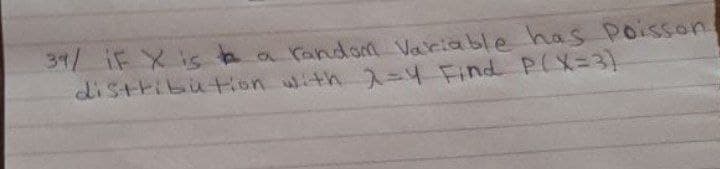 39/ if X is a random Variable has poisson
distribution with λ=4 Find P(X=3)